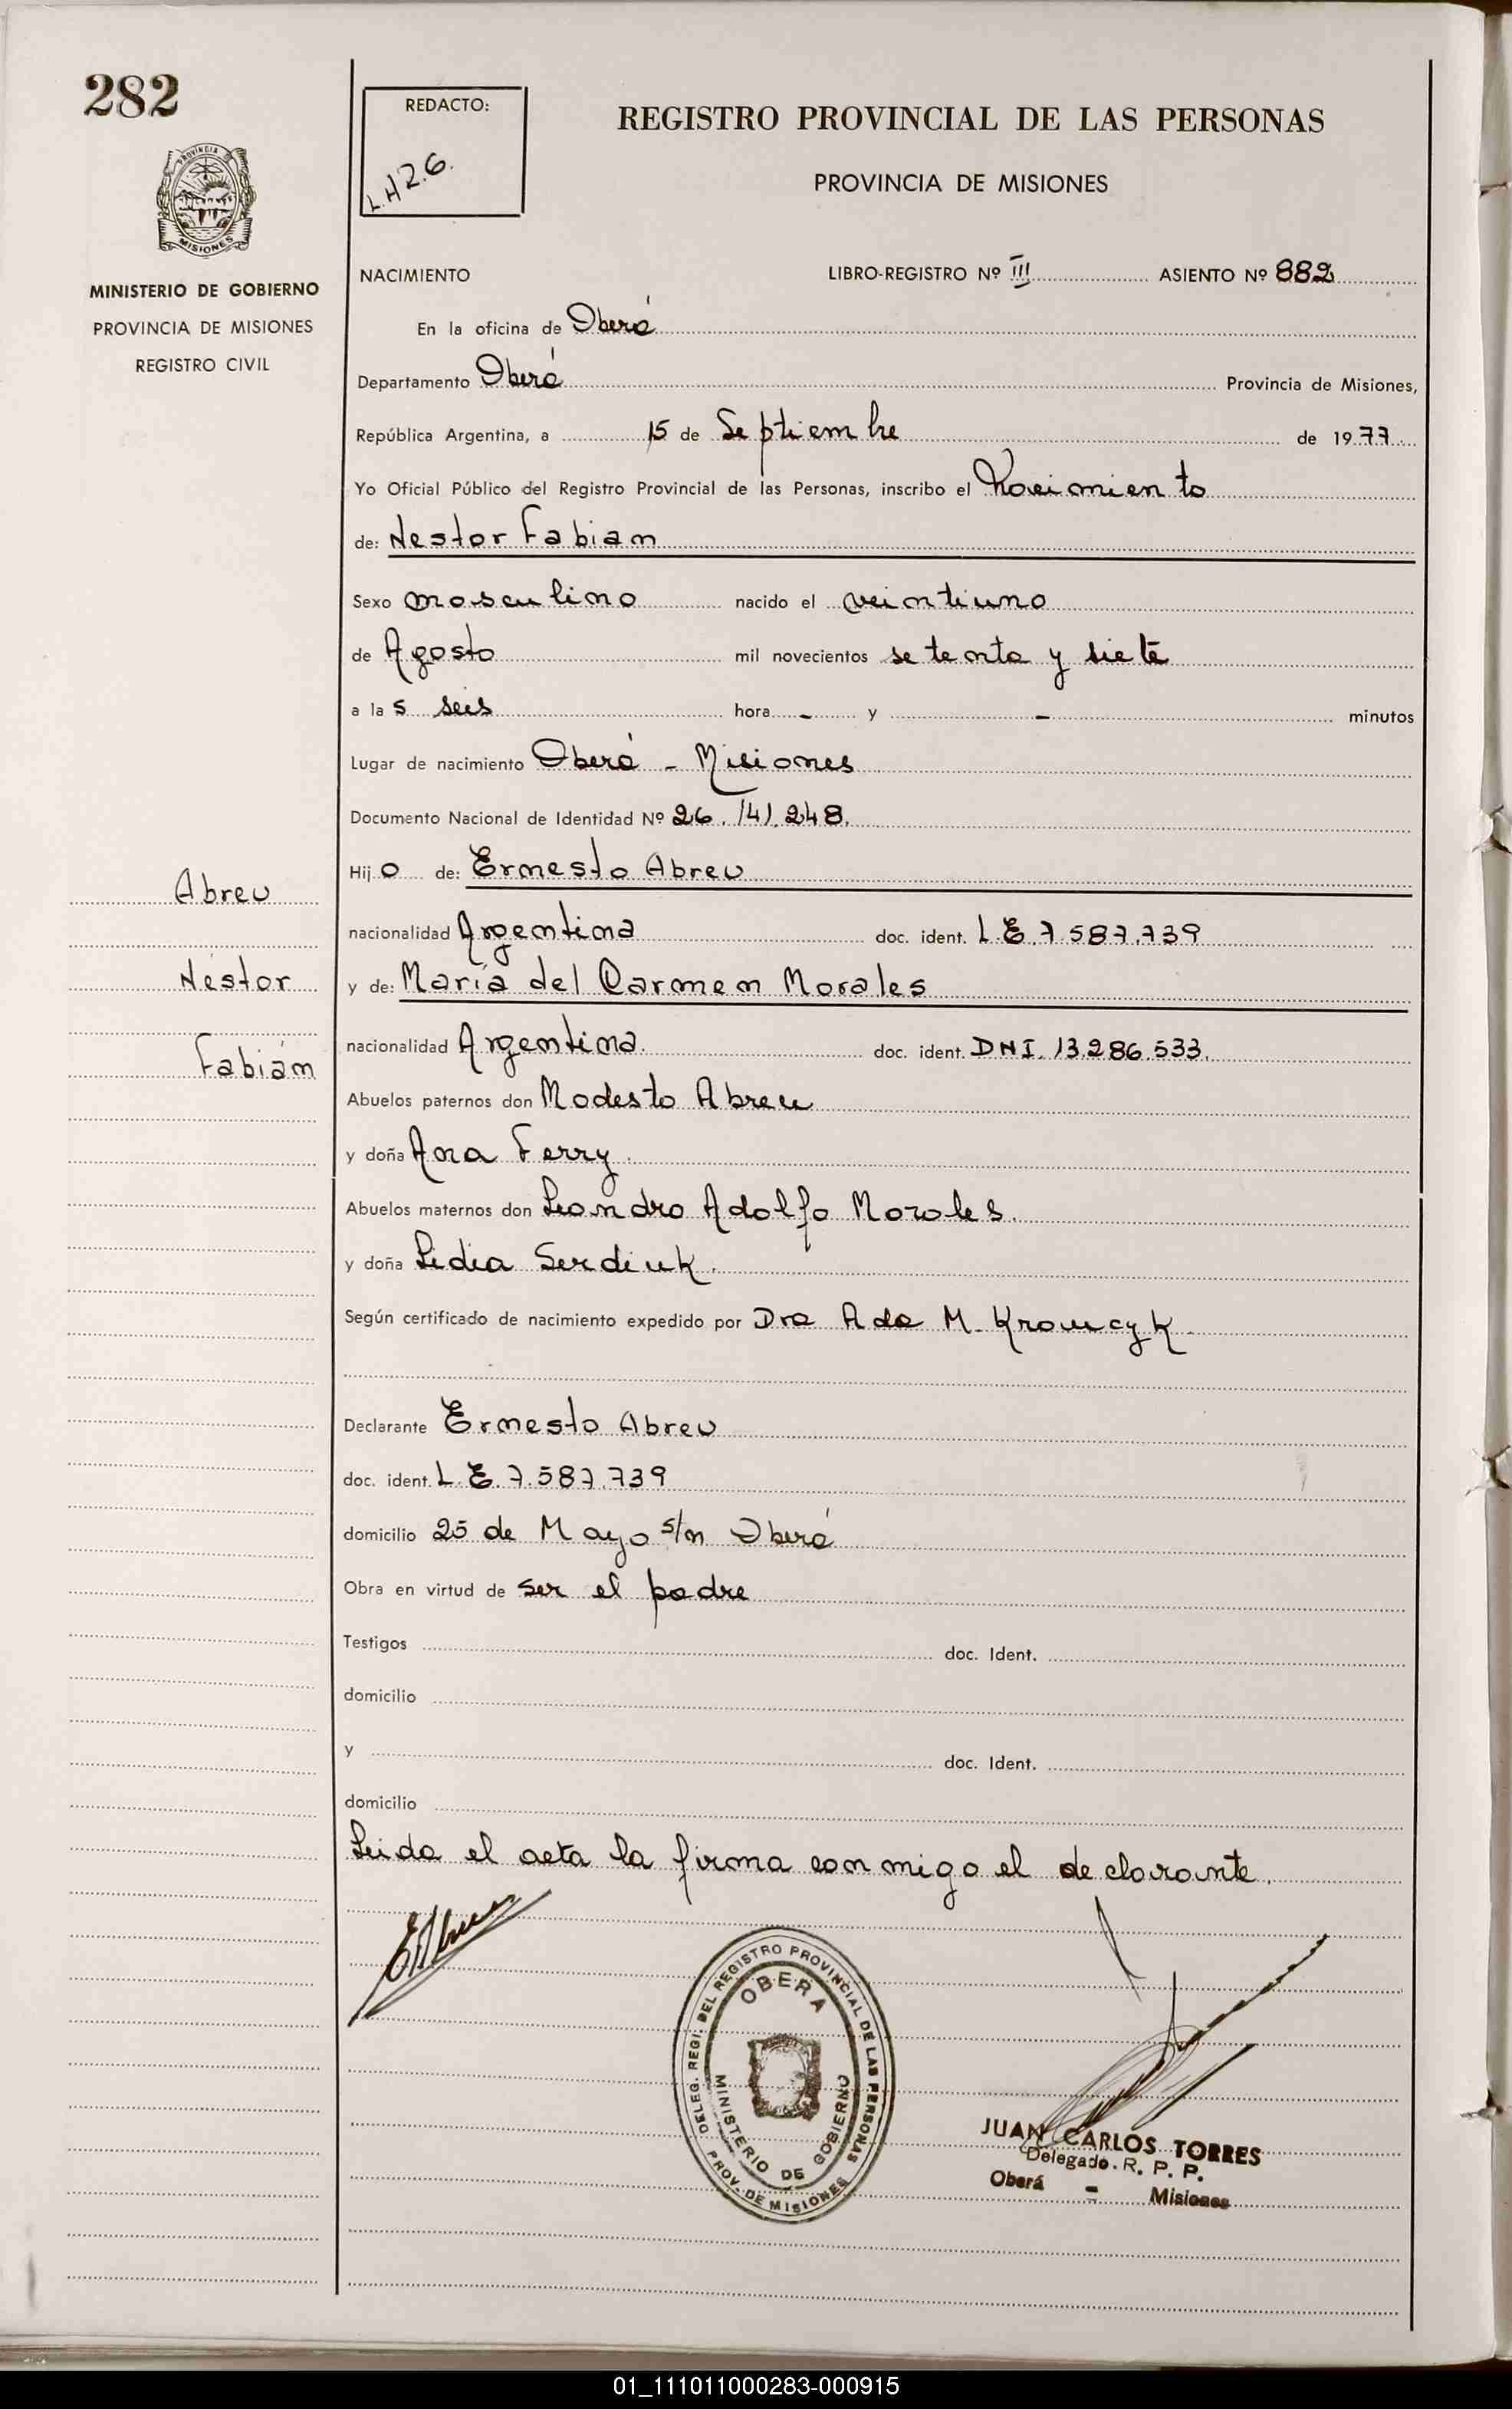 282
REDACTO:
L.H.2.6.
REGISTRO PROVINCIAL DE LAS PERSONAS
PROVINCIA DE MISIONES
PROVINCIA
MISIONES
MINISTERIO DE GOBIERNO
PROVINCIA DE MISIONES
REGISTRO CIVIL
NACIMIENTO LIBRO-REGISTRO Nº III ASIENTO Nº 882
En la oficina de Oberá
Departamento Oberá Provincia de Misiones,
República Argentina, a 15 de Septiembre de 1977
Yo Oficial Público del Registro Provincial de las Personas, inscribo el Nacimiento
de: Nestor Fabian
Sexo masculino nacido el veintiuno
de Agosto mil novecientos setenta y siete
a la s seis hora - y - minutos
Lugar de nacimiento Oberá - Misiones
Documento Nacional de Identidad Nº 26.141.248.
Hij o de: Ernesto Abreu
nacionalidad Argentina doc. ident. L.E.7.587.739
y de: María del Carmen Morales
nacionalidad Argentina. doc. ident. DNI. 13.286.533.
Abuelos paternos don Modesto Abreu
y doña Ana Ferry.
Abuelos maternos don Leandro Adolfo Morales.
y doña Lidia Serdiuk.
Según certificado de nacimiento expedido por Dra Ada M. Krawcyk.
Declarante Ernesto Abreu
doc. ident. L.E.7.587.739
domicilio 25 de Mayo s/n Oberá
Obra en virtud de ser el padre
Testigos doc. Ident.
domicilio
y doc. Ident.
domicilio
Leida el acta la firma conmigo el declarante.
Abreu
Néstor
Fabián
EAbreu
DELEG. REGI. DEL REGISTRO PROVINCIAL DE LAS PERSONAS
PROV. DE MISIONES
OBERA
MINISTERIO DE GOBIERNO
JUAN CARLOS TORRES
Delegado. R. P. P.
Oberá - Misiones
01_111011000283-000915